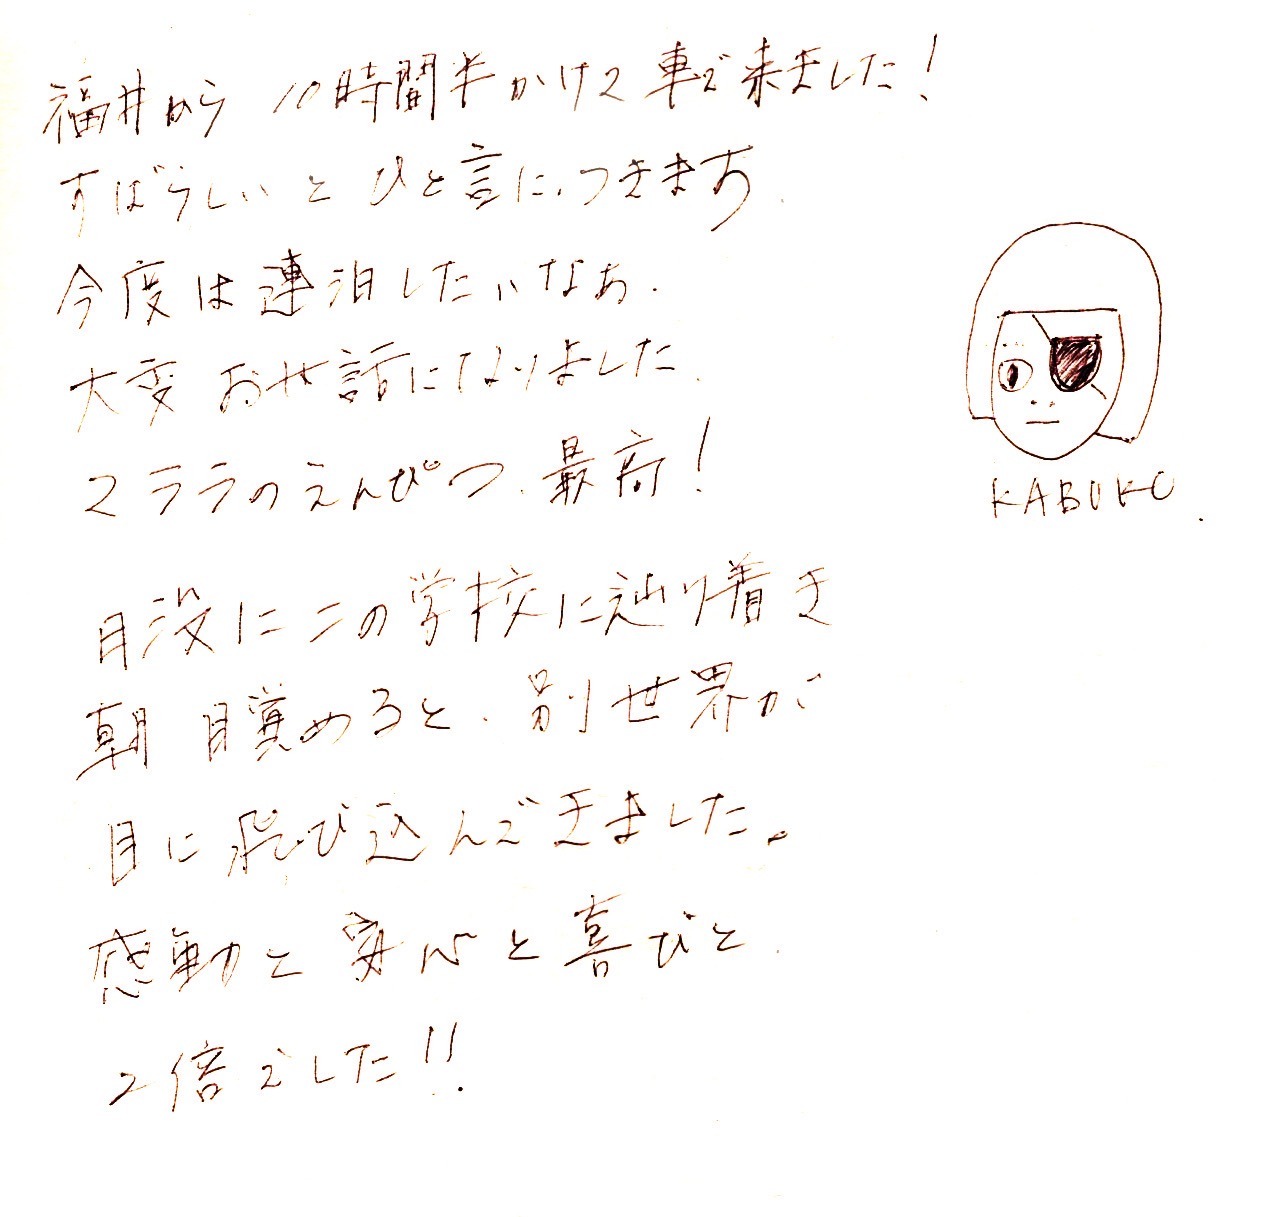 福井から 10時間半かけて 車で来ました!
すばらしいと ひと言に、つきます.
今度は連泊したいなぁ.
大変 お世話になりました.
ララのえんぴつ、最高!
KABUKO.
日没にこの学校に辿り着き
朝 目覚めると、別世界が
目に飛び込んできました。
感動と 安心と喜びと.
2倍でした!!